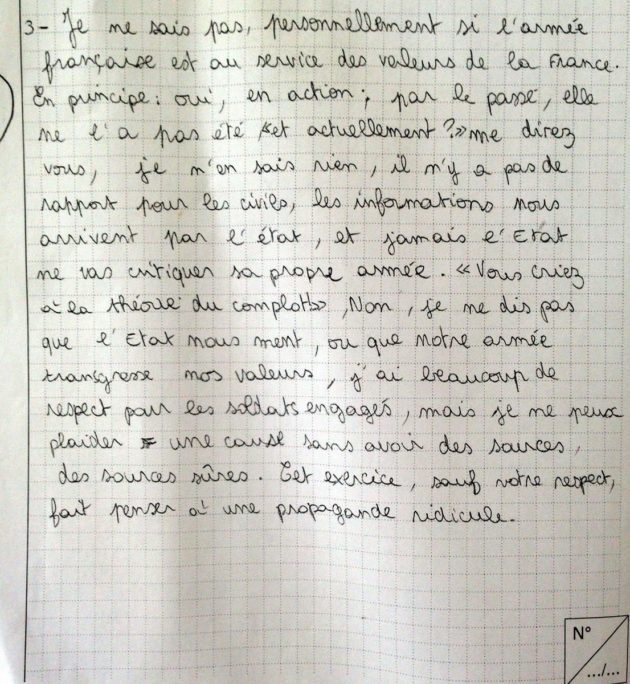 3- Je ne sais pas, personnellement si l'armée
française est au service des valeurs de la France.
En principe: oui, en action; par le passé, elle
ne l'a pas été «et actuellement?» me direz
vous, je n'en sais rien, il n'y a pas de
rapport pour les civils, les informations nous
arrivent par l'état, et jamais l'Etat
ne vas critiquer sa propre armée. «Vous criez
à la théorie du complot!», Non, je ne dis pas
que l'Etat nous ment, ou que notre armée
transgresse nos valeurs, j'ai beaucoup de
respect pour les soldats engagés, mais je ne peux
plaider une cause sans avoir des sources,
des sources sûres. Cet exercice, sauf votre respect,
fait penser à une propagande ridicule.
N°
.../...